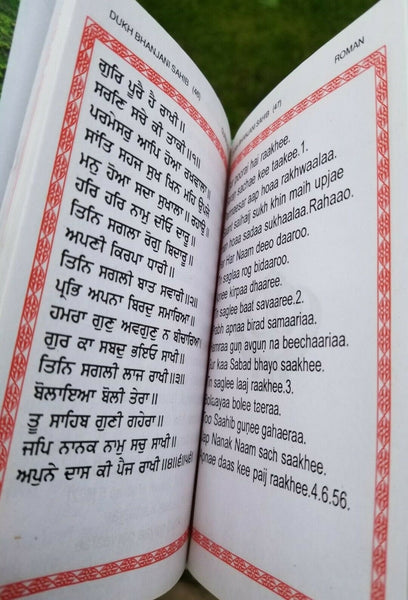 DUKH BHANJANI SAHIB (46)
ਗੁਰਿ ਪੂਰੈ ਹੈ ਰਾਖੀ॥
ਸਰਣਿ ਸਚੇ ਕੀ ਤਾਕੀ॥੧॥
ਪਰਮੇਸਰੁ ਆਪਿ ਹੋਆ ਰਖਵਾਲਾ॥
ਸਾਂਤਿ ਸਹਜ ਸੁਖ ਖਿਨ ਮਹਿ ਉਪਜੇ
ਮਨੁ ਹੋਆ ਸਦਾ ਸੁਖਾਲਾ॥ਰਹਾਉ॥
ਹਰਿ ਹਰਿ ਨਾਮੁ ਦੀਓ ਦਾਰੂ॥
ਤਿਨਿ ਸਗਲਾ ਰੋਗੁ ਬਿਦਾਰੂ॥
ਅਪਣੀ ਕਿਰਪਾ ਧਾਰੀ॥
ਤਿਨਿ ਸਗਲੀ ਬਾਤ ਸਵਾਰੀ॥੨॥
ਪ੍ਰਭਿ ਅਪਨਾ ਬਿਰਦੁ ਸਮਾਰਿਆ॥
ਹਮਰਾ ਗੁਣੁ ਅਵਗੁਣੁ ਨ ਬੀਚਾਰਿਆ॥
ਗੁਰ ਕਾ ਸਬਦੁ ਭਇਓ ਸਾਖੀ॥
ਤਿਨਿ ਸਗਲੀ ਲਾਜ ਰਾਖੀ॥੩॥
ਬੋਲਾਇਆ ਬੋਲੀ ਤੇਰਾ॥
ਤੂ ਸਾਹਿਬੁ ਗੁਣੀ ਗਹੇਰਾ॥
ਜਪਿ ਨਾਨਕ ਨਾਮੁ ਸਚੁ ਸਾਖੀ॥
ਅਪੁਨੇ ਦਾਸ ਕੀ ਪੈਜ ਰਾਖੀ॥੪॥੬॥੫੬॥
SAHIB (47) ROMAN
hai raakhee.
kee taakee.1.
aap hoaa rakhwaalaa.
sahaij sukh khin maih upjae
hoaa sadaa sukhaalaa.Rahaao.
Har Naam deeo daaroo.
saglaa rog bidaaroo.
kirpaa dhaaree.
saglee baat savaaree.2.
apnaa birad samaariaa.
gun avgun na beechaariaa.
kaa Sabad bhayo saakhee.
saglee laaj raakhee.3.
bolee taeraa.
Saahib gunee gahaeraa.
Nanak Naam sach saakhee.
daas kee paij raakhee.4.6.56.